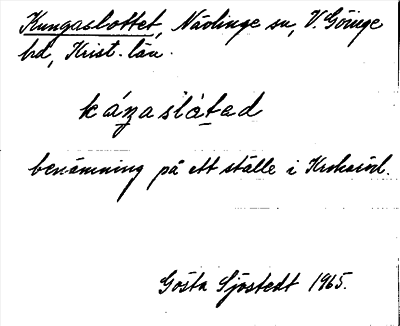 Kungaslottet, Nävlinge sn, V. Göinge
hd, Krist. län.
káŋaslàtəd
benämning på ett ställe i
Gösta Sjöstedt 1965.